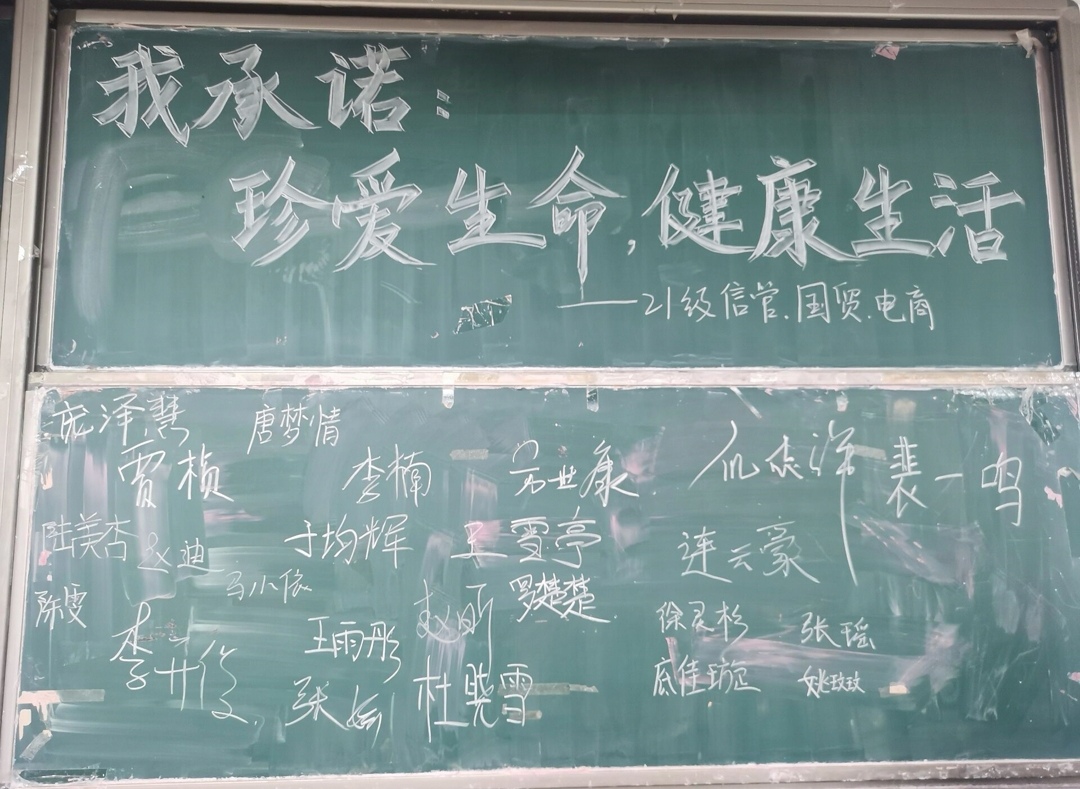 我承诺:
珍爱生命,健康生活
——21级信管、国贸、电商
庞泽慧 唐梦情
贾桢 李楠 世康 裴一鸣
陆美杏 迪 于均辉 王雪亭 连云豪
陈雯 马小依 罗楚楚 徐灵杉 张瑶
李开俊 王雨彤 赵昕
张 杜晓雪 底佳璇 姚玫玫